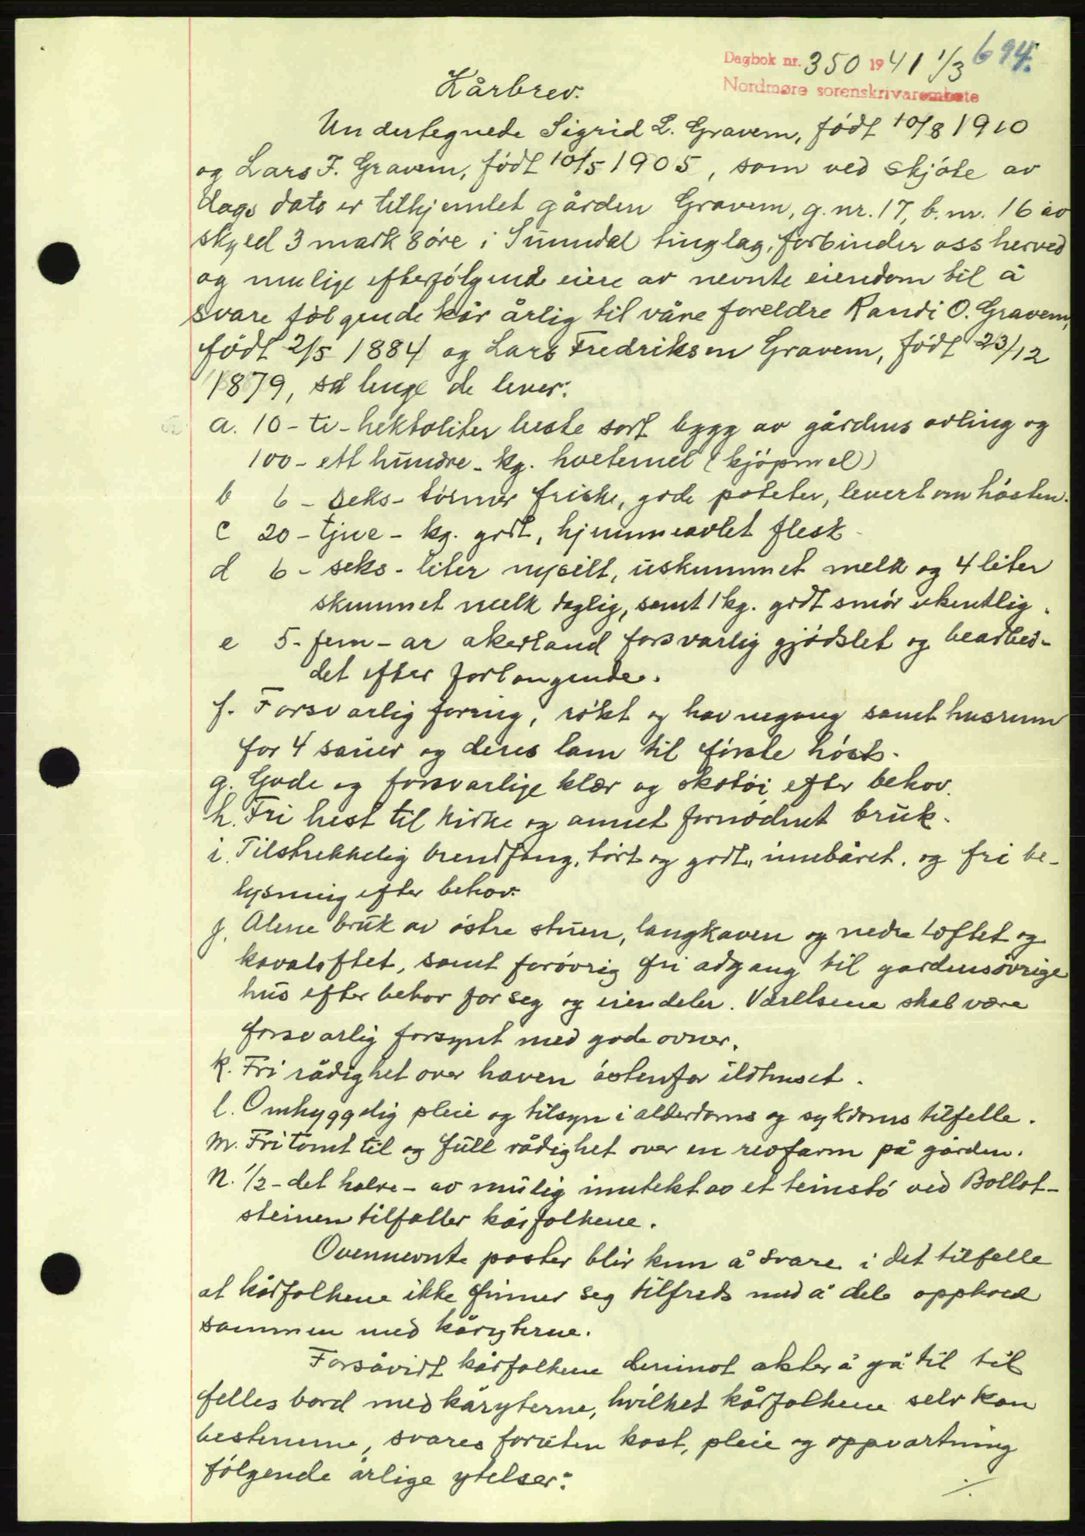 694.
Dagbok nr. 350 1941 1/3
Nordmøre sorenskrivarembete
Kårbrev.
Undertegnede Sigrid L. Gravem, født 10/8 1910
og Lars F. Gravem, født 10/5 1905, som ved skjøte av
dags dato er tilhjemlet gården Gravem, g.nr. 17, b.nr. 16 av
skyld 3 mark 8 øre i Sunndal tinglag, forbinder oss herved
og mulige efterfølgende eiere av nevnte eiendom til å
svare følgende kår årlig til våre foreldre Randi O. Gravem,
født 2/5 1884 og Lars Fredriksen Gravem, født 23/12
1879, så lenge de lever:
a. 10 - ti - hektoliter beste sort bygg av gårdens avling og
100 - ett hundre - kg. hvetemel (kjøpmel)
b 6 - seks - tønner friske, gode poteter, levert om høsten.
c 20 - tjue - kg. godt, hjemmeavlet flesk.
d 6 - seks - liter nysilt, uskummet melk og 4 liter
skummet melk daglig, samt 1 kg. godt smør ukentlig.
e 5 - fem - ar akerland forsvarlig gjødslet og bearbei-
det efter forlangende.
f. Forsvarlig foring, røkt og havnegang samt husrum
for 4 sauer og deres lam til første høst.
g. Gode og forsvarlige klær og skotøi efter behov.
h. Fri hest til kirke og annet fornødent bruk.
i. Tilstrekkelig brendfang, tørt og godt, innebåret, og fri be-
lysning efter behov.
j. Alene bruk av østre stuen, langkaven og nedre loftet og
kavaloftet, samt forøvrig fri adgang til gardens øvrige
hus efter behov for seg og eiendeler. Værelsene skal være
forsvarlig forsynt med gode ovner.
k. Fri rådighet over haven østenfor ildhuset.
l. Omhyggelig pleie og tilsyn i alderdoms og sykdoms tilfelle.
m. Fri tomt til og full rådighet over en revfarm på gården.
n. 1/2 - det halve - av mulig inntekt av et teinstø ved Bollot-
steinen tilfaller kårfolkene.
Ovennevnte poster blir kun å svare i det tilfelle
at kårfolkene ikke finner seg tilfreds med å dele opphold
sammen med kåryterne.
Forsåvidt kårfolkene derimot akter å gå til til
felles bord med kåryterne, hvilket kårfolkene selv kan
bestemme, svares foruten kost, pleie og oppvartning
følgende årlige ytelser:
./.